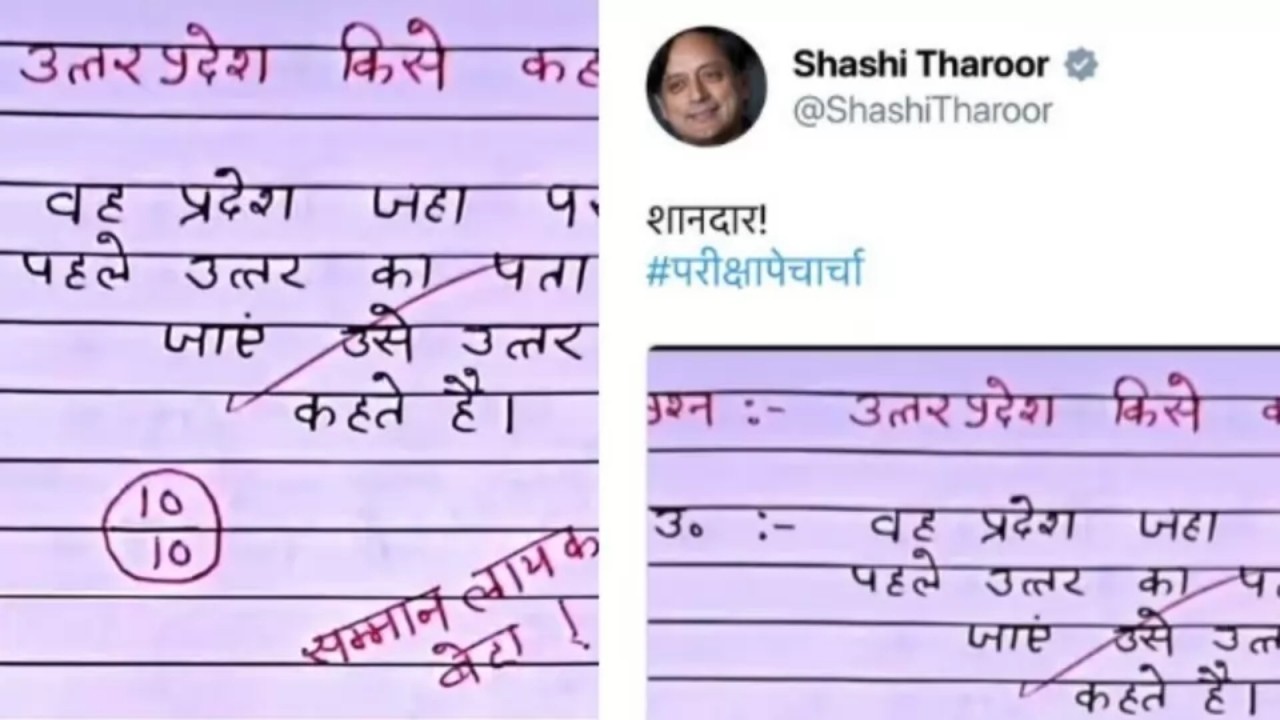 उत्तर प्रदेश किसे
वह प्रदेश जहा
पहले उत्तर का पता
जाएं उसे उत्तर
कहते है।
10
10
सम्मान लायक
बेटा !
Shashi Tharoor
@ShashiTharoor
शानदार!
#परीक्षापेचार्चा
:- उत्तर प्रदेश किसे
उ० :- वह प्रदेश जहा
पहले उत्तर का
जाएं उसे
कहते है।